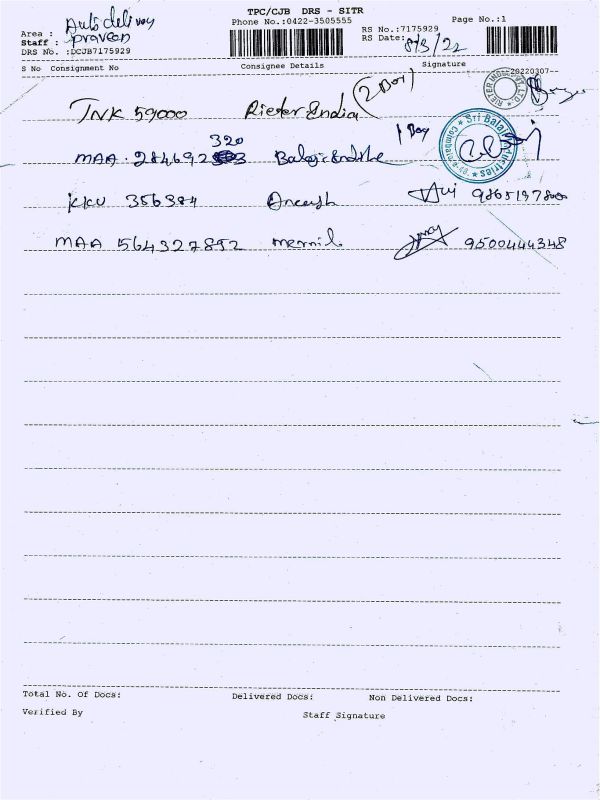 TPC/CJB DRS - SITR
Phone No.:0422-3505555 Page No.:1
Area : Auto delivary
Staff : praveen
DRS No. :DCJB7175929
RS No.:7175929
RS Date: 8/3/22
S No Consignment No Consignee Details Signature
20220307-
TNK 59000 Rieter India (2 Box)
320
MAA 284692 Balaji 1 Box
Sri Balaji
KKU 356384 9865197800
MAA 564327892 mennil 9500444348
Total No. Of Docs: Delivered Docs: Non Delivered Docs:
Verified By Staff Signature